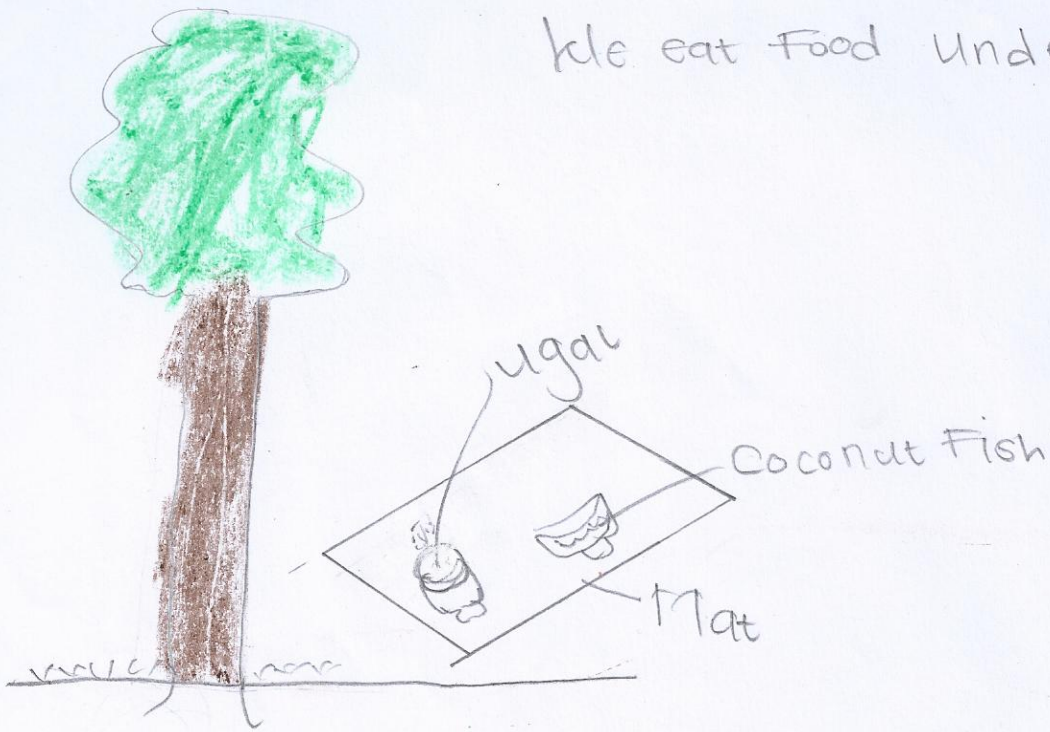 We eat Food Und
ugali
Coconut Fish
Mat